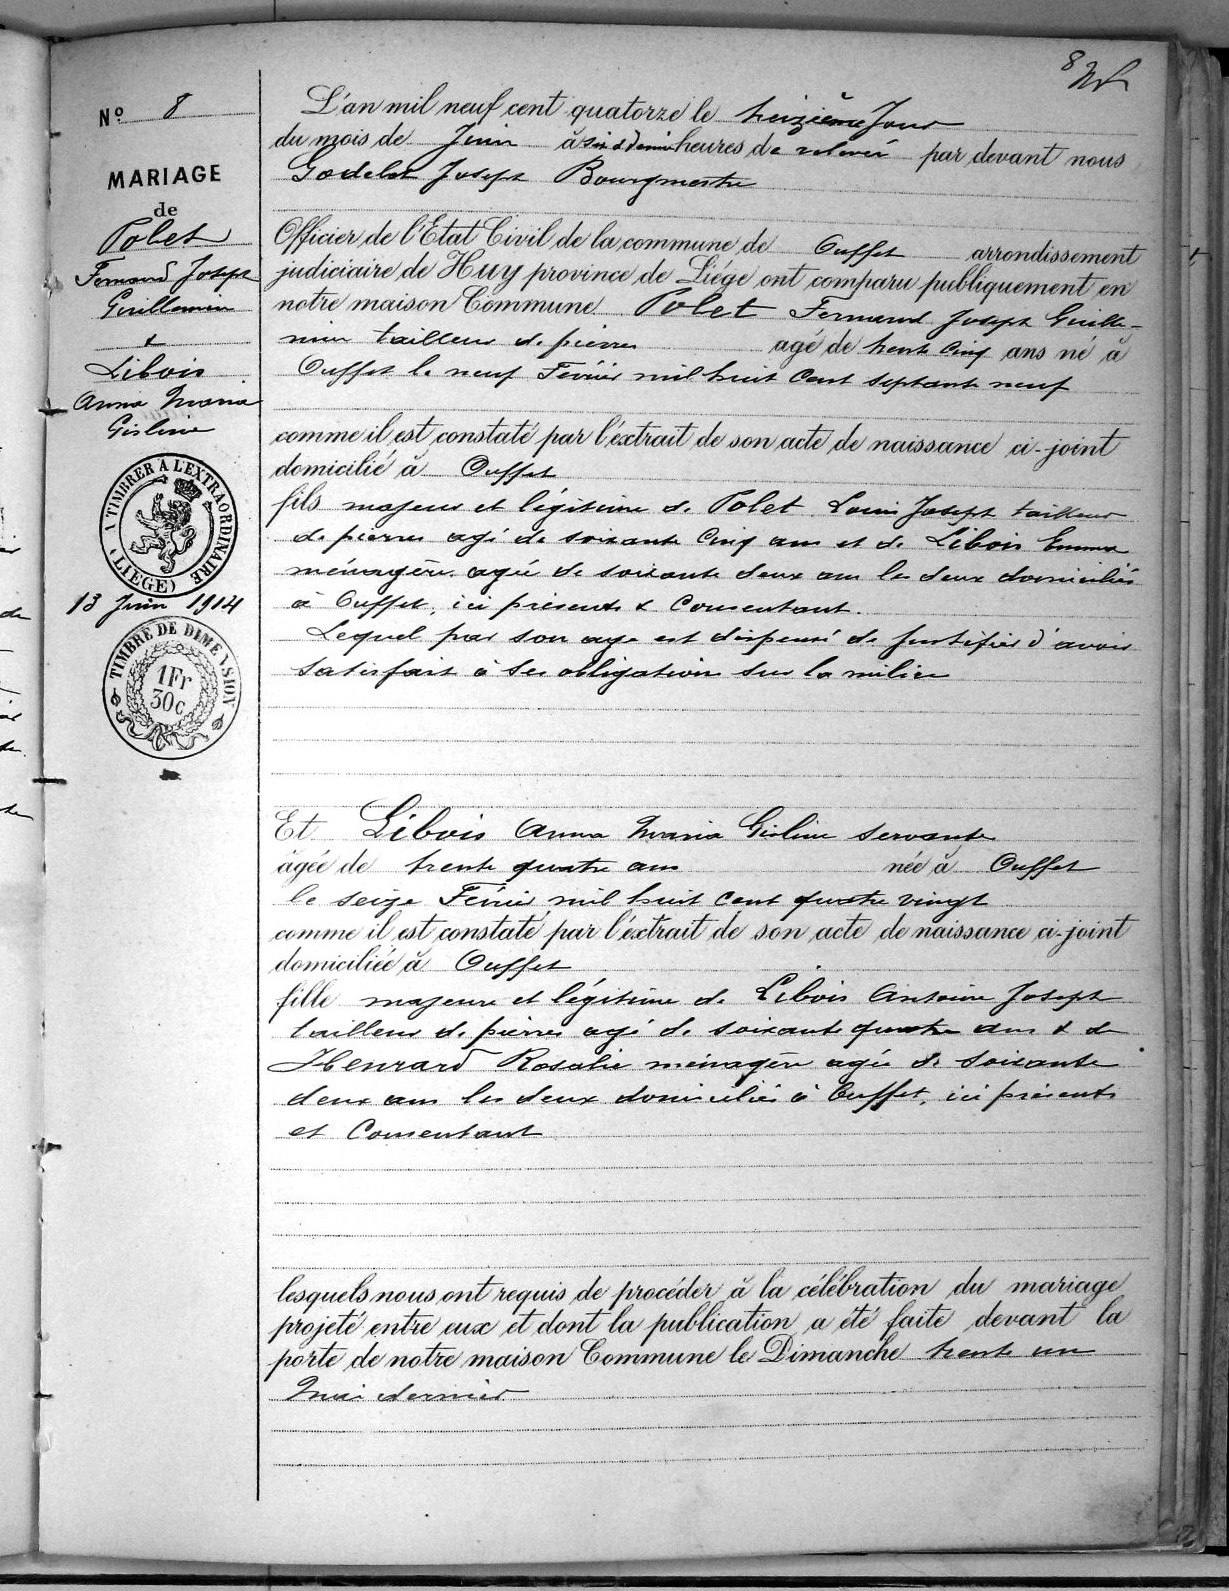 8
N° 8
MARIAGE
de
Polet
Fernand Joseph
Guillemin
&
Libois
Anna Maria
Gisline
A TIMBRER A L'EXTRAORDINAIRE
(LIEGE)
13 Juin 1914
TIMBRE DE DIMENSION
1Fr
30c
L'an mil neuf cent quatorze le treizième Jour
du mois de Juin à six & demi heures de relevée par devant nous
Godelet Joseph Bourgmestre
Officier de l'Etat Civil de la commune de Ouffet arrondissement
judiciaire de Huy province de Liége ont comparu publiquement en
notre maison Commune Polet Fernand Joseph Guille-
min tailleur de pierres agé de trente cinq ans né à
Ouffet le neuf Février mil huit cent septante neuf
comme il est constaté par l'éxtrait de son acte de naissance ci-joint
domicilié à Ouffet
fils majeur et légitime de Polet Louis Joseph tailleur
de pierres agé de soixante cinq ans et de Libois Emma
ménagère agée de soixante deux ans les deux domiciliés
à Ouffet, ici présents & consentant.
Lequel par son age est dispensé de justifier d'avoir
satisfait à ses obligation sur la milice
Et Libois Anna Maria Gisline servante
âgée de trente quatre ans née à Ouffet
le seize Février mil huit cent quatre vingt
comme il est constaté par l'éxtrait de son acte de naissance ci-joint
domiciliée à Ouffet
fille majeure et légitime de Libois Antoine Joseph
tailleur de pierres agé de soixante quatre ans & de
Henrard Rosalie ménagère agée de soixante
deux ans les deux domiciliés à Ouffet, ici présents
et consentant
lesquels nous ont requis de procéder à la célébration du mariage
projeté entre eux et dont la publication a été faite devant la
porte de notre maison Commune le Dimanche trente un
Mai dernier